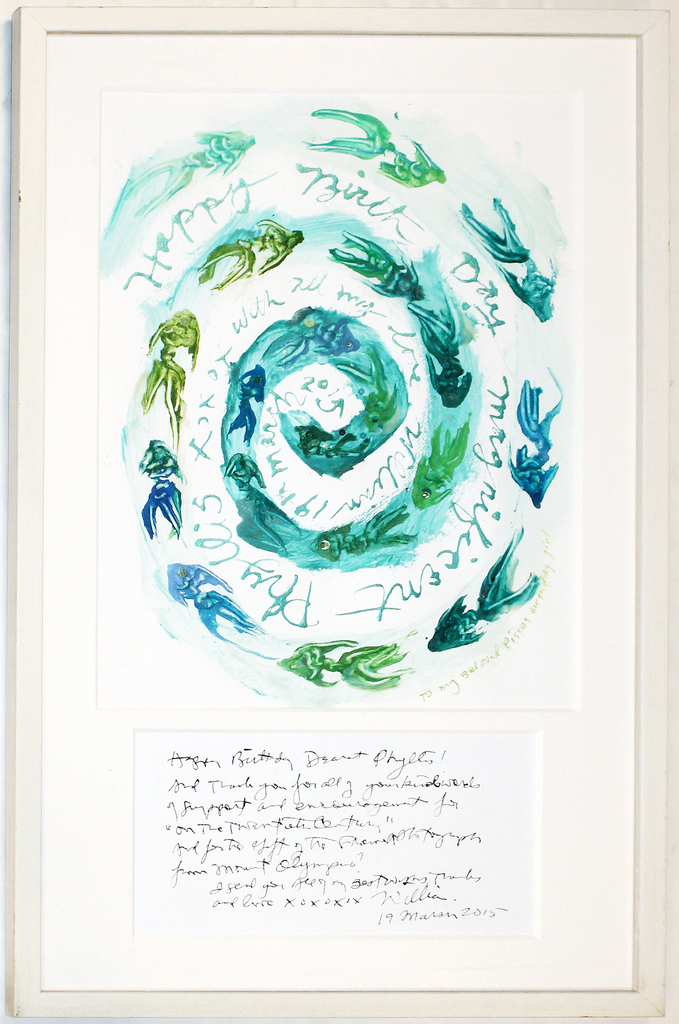 Happy Birth Day magnificent Phyllis xoxox with all my love William 19th march 2015
To my Beloved Pisces birthday girl
Happy Birthday Dearest Phyllis!
And Thank you for all of your kind words
of support and encouragement for
"on The Twentieth Century"
And for the gift of the Framed Photograph
from Mount Olympus!
I send you all of my best wishes, Thanks
and love xoxoxix William.
19 March 2015